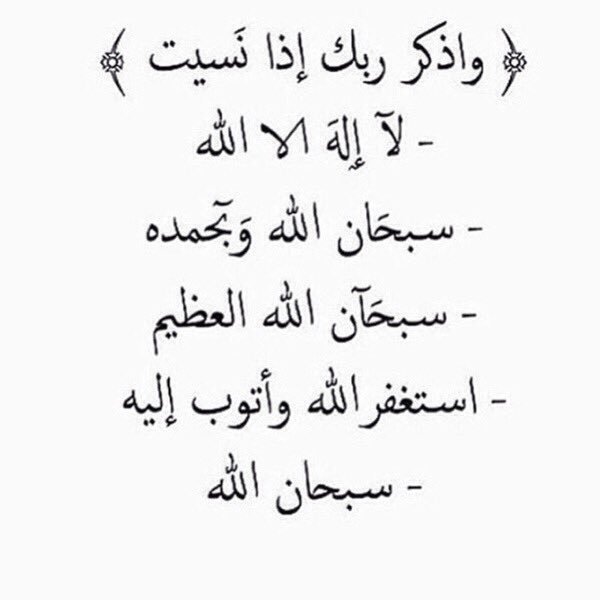 ﴿ واذكر ربك إذا نَسيت ﴾
- لآ إلهَ الا الله
- سبحَان الله وَبآحمده
- سبحَآن الله العظيم
- استغفرالله وأتوب إليه
- سبحان الله